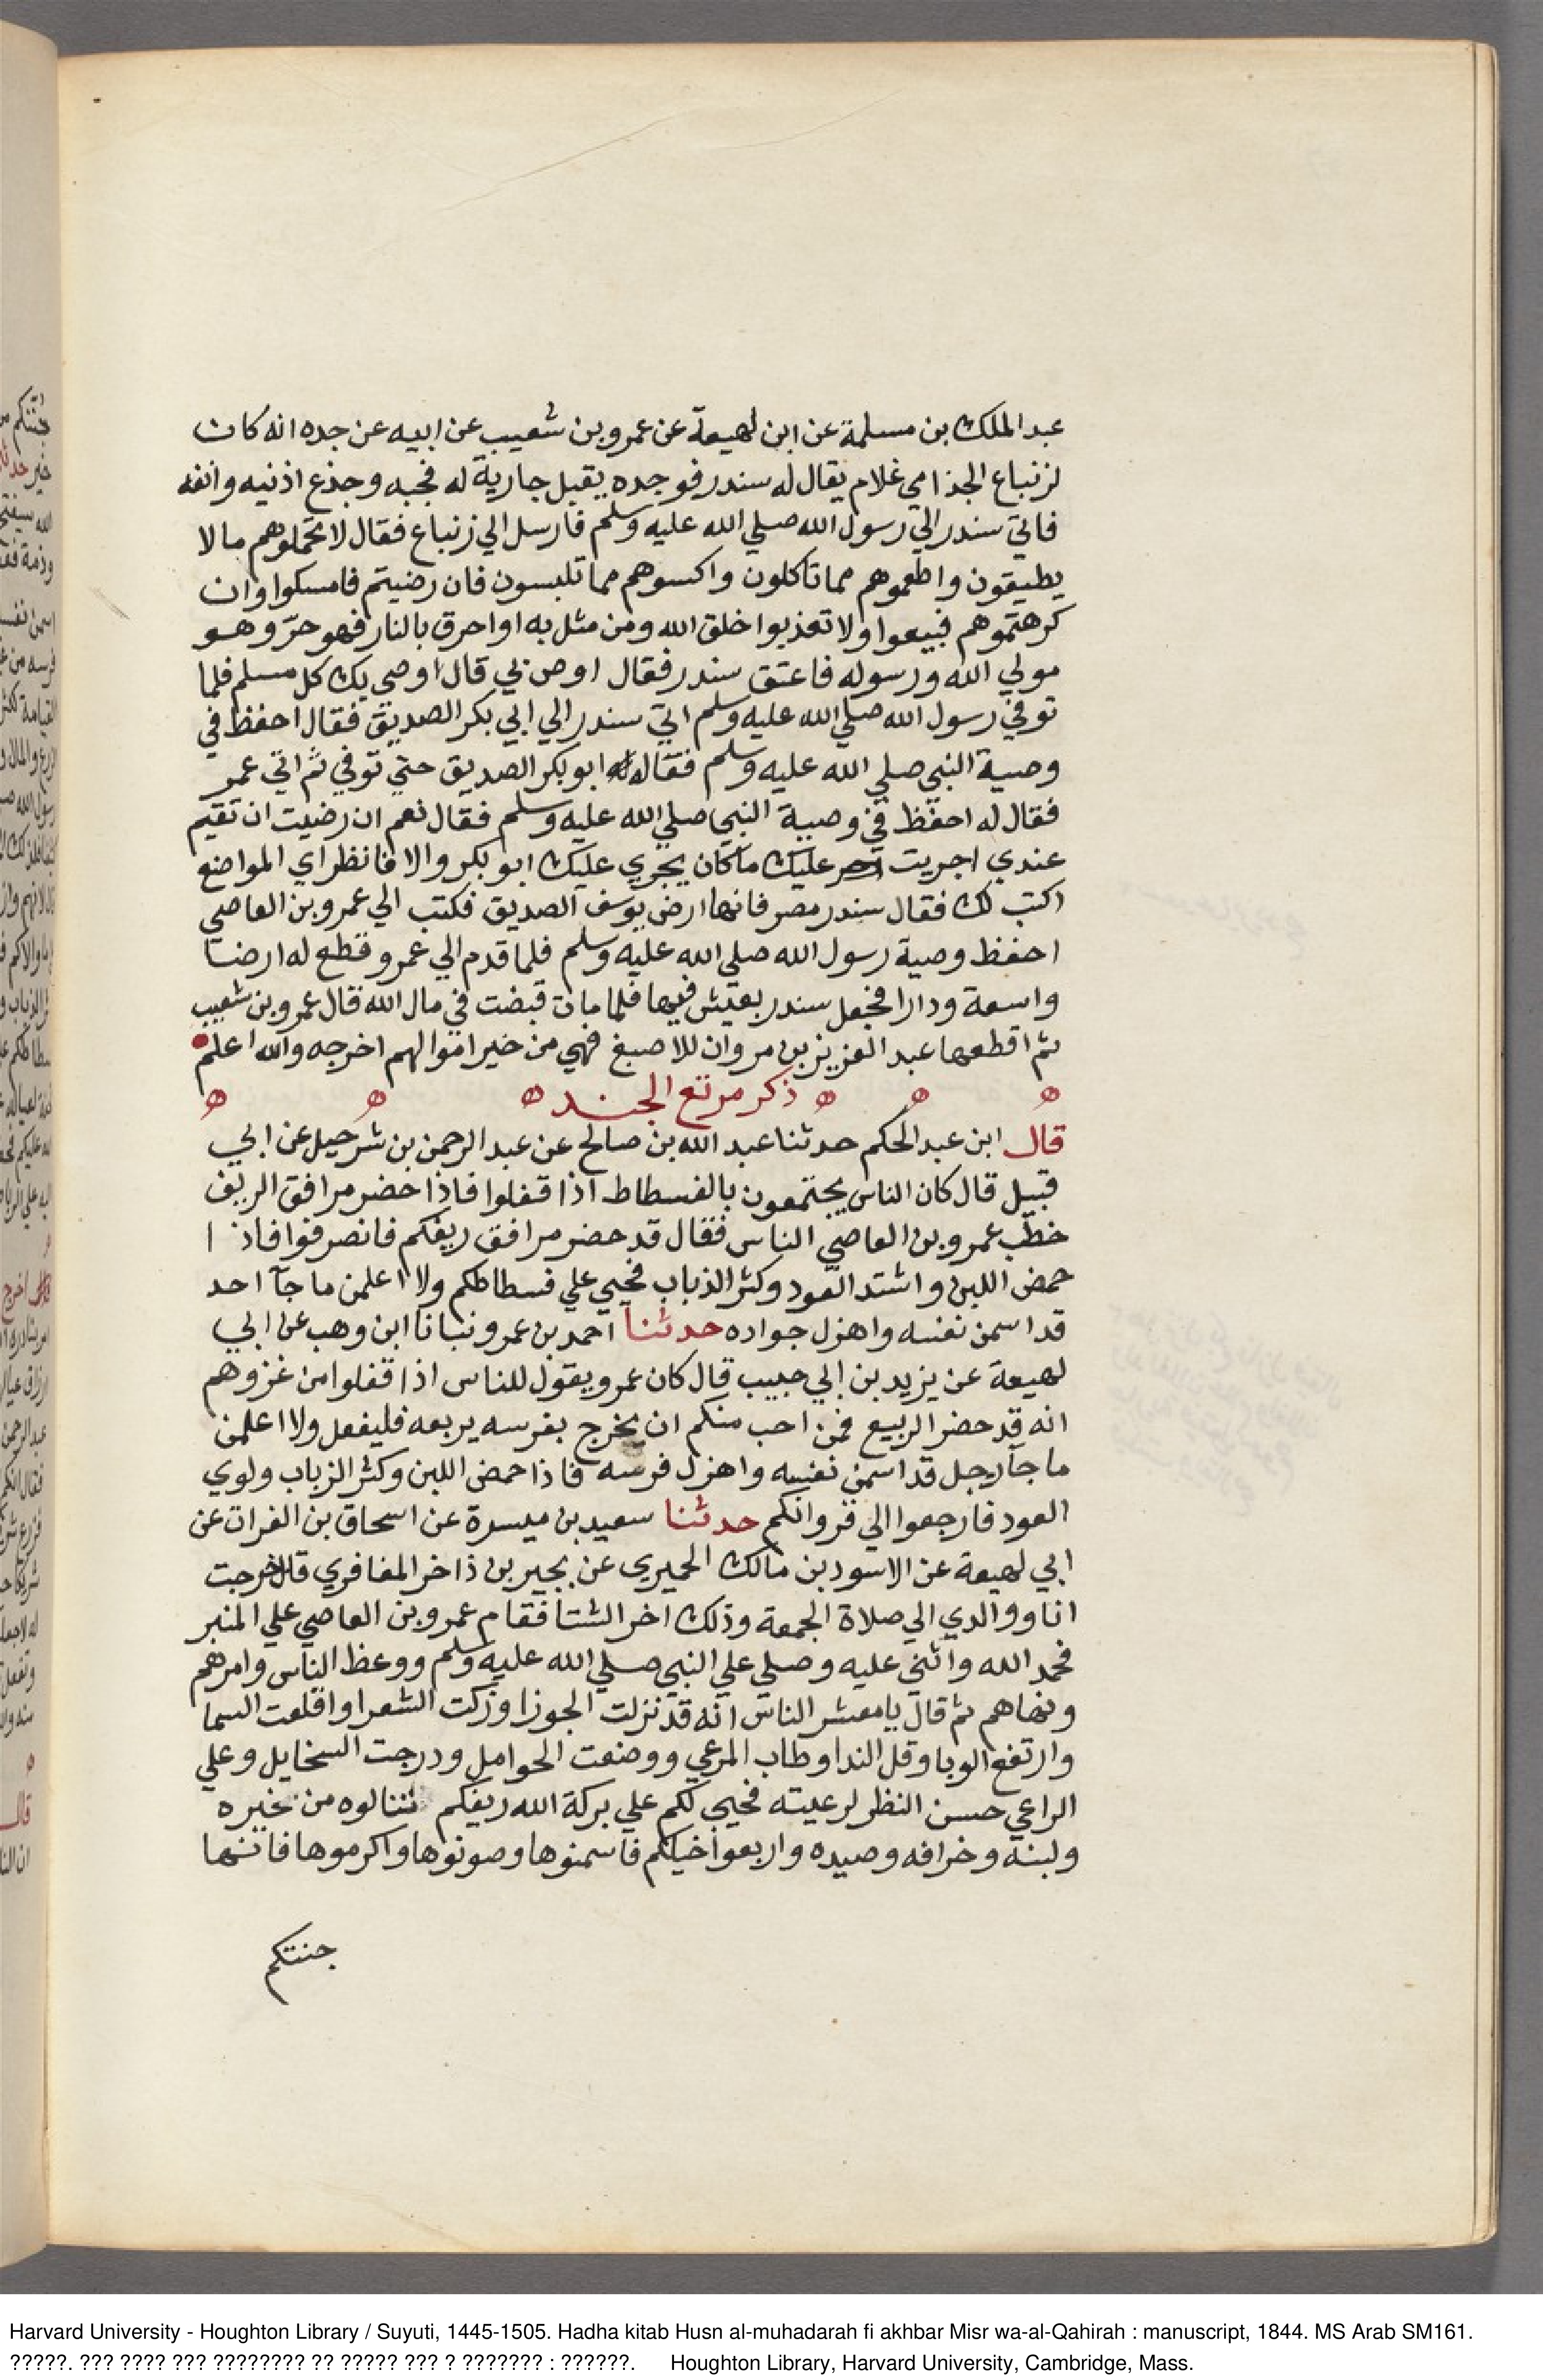 عبد الملك بن مسلمة عن ابن لهيعة عن عمرو بن شعيب عن ابيه عن جده انه كان
لزنباع الجذامي غلام يقال له سندر فوجده يقبل جارية له فجبه وجذع اذنيه وانفه
فاتي سندر الي رسول الله صلي الله عليه وسلم فارسل الي زنباع فقال لا تحملوهم ما لا
يطيقون واطعموهم مما تاكلون واكسوهم مما تلبسون فان رضيتم فامسكوا وان
كرهتموهم فبيعوا ولا تعذبوا خلق الله ومن مثل به او احرق بالنار فهو حرّ وهو
مولي الله ورسوله فاعتق سندر فقال اوص بي قال اوصي بك كل مسلم فلما
توفي رسول الله صلي الله عليه وسلم اتي سندر الي ابي بكر الصديق فقال احفظ في
وصية النبي صلي الله عليه وسلم فقاله ابو بكر الصديق حتي توفي ثم اتي عمر
فقال له احفظ في وصية النبي صلي الله عليه وسلم فقال نعم ان رضيت ان تقيم
عندي اجريت عليك ما كان يجري عليك ابو بكر والا فانظر اي المواضع
اكتب لك فقال سندر مصر فانها ارض يوسف الصديق فكتب الي عمرو بن العاصي
احفظ وصية رسول الله صلي الله عليه وسلم فلما قدم الي عمرو قطع له ارضا
واسعة ودارا فجعل سندر يعيش فيها فلما مات قبضت في مال الله قال عمرو بن شعيب
ثم اقطعها عبد العزيز بن مروان للاصبغ فهي من خير اموالهم اخرجه والله اعلم
ذكر مرتع الجند
قال ابن عبد الحكم حدثنا عبد الله بن صالح عن عبد الرحمن بن شرحيل عن ابي
قبيل قال كان الناس يجتمعون بالفسطاط اذا قفلوا فاذا حضر مرافق الريف
خطب عمرو بن العاصي الناس فقال قد حضر مرافق ريفكم فانصرفوا فاذا
حمض اللبن واشتد العود وكثر الذباب فحيي علي فسطاطكم ولا اعلمن ما جآ احد
قد اسمن نفسه واهزل جواده حدثنا احمد بن عمرو نبانا ابن وهب عن ابي
لهيعة عن يزيد بن ابي حبيب قال كان عمرو يقول للناس اذا قفلوا من غزوهم
انه قد حضر الربيع فمن احب منكم ان يخرج بفرسه يربعه فليفعل ولا اعلمن
ما جآ رجل قد اسمن نفسه واهزل فرسه فاذا حمض اللبن وكثر الزباب ولوي
العود فارجعوا الي قروانكم حدثنا سعيد بن ميسرة عن اسحاق بن الفرات عن
ابي لهيعة عن الاسود بن مالك الحميري عن بجير بن ذاخر المغافري قال خرجت
انا ووالدي الي صلاة الجمعة وذلك اخر الشتا فقام عمرو بن العاصي علي المنبر
فحمد الله واثني عليه وصلي علي النبي صلي الله عليه وسلم ووعظ الناس وامرهم
ونهاهم ثم قال يا معشر الناس انه قد نزلت الجوزا وزكت الشعرا واقلعت السما
وارتفع الوبا وقل الندا وطاب المرعي ووضعت الحوامل ودرجت السخايل وعلي
الراعي حسن النظر لرعيته فحيي لكم علي بركة الله ريفكم تنالوه من خيره
ولبنه وخرافه وصيده واربعوا خيلكم فاسمنوها وصونوها واكرموها فانها
جنتكم
Harvard University - Houghton Library / Suyuti, 1445-1505. Hadha kitab Husn al-muhadarah fi akhbar Misr wa-al-Qahirah : manuscript, 1844. MS Arab SM161.
?????. ??? ???? ??? ???????? ?? ????? ??? ? ??????? : ??????. Houghton Library, Harvard University, Cambridge, Mass.